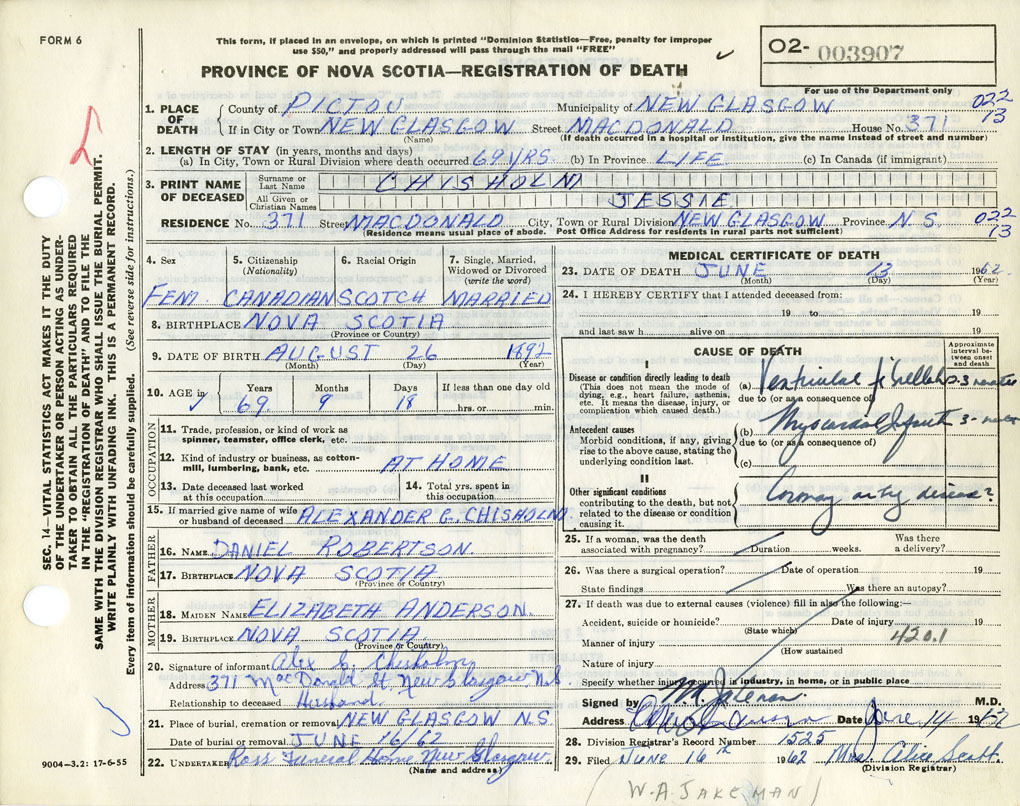 FORM 6
This form, if placed in an envelope, on which is printed "Dominion Statistics—Free, penalty for improper
use $50," and properly addressed will pass through the mail "FREE"
O2- 003907
PROVINCE OF NOVA SCOTIA—REGISTRATION OF DEATH
For use of the Department only
1. PLACE OF DEATH
County of PICTOU Municipality of NEW GLASGOW 022
If in City or Town NEW GLASGOW Street MACDONALD House No. 371 13
(Name) (If death occurred in a hospital or institution, give the name instead of street and number)
2. LENGTH OF STAY (in years, months and days)
(a) In City, Town or Rural Division where death occurred 69 YRS. (b) In Province LIFE (c) In Canada (if immigrant)
3. PRINT NAME OF DECEASED
Surname or Last Name CHISHOLM
All Given or Christian Names JESSIE
RESIDENCE No. 371 Street MACDONALD City, Town or Rural Division NEW GLASGOW Province N.S. 022
(Residence means usual place of abode. Post Office Address for residents in rural parts not sufficient) 13
4. Sex
5. Citizenship (Nationality)
6. Racial Origin
7. Single, Married, Widowed or Divorced (write the word)
FEM. CANADIAN SCOTCH MARRIED
8. BIRTHPLACE NOVA SCOTIA
(Province or Country)
9. DATE OF BIRTH AUGUST 26 1892
(Month) (Day) (Year)
10. AGE in Years Months Days If less than one day old
69. 9 18 hrs. or min.
OCCUPATION
11. Trade, profession, or kind of work as
spinner, teamster, office clerk, etc.
12. Kind of industry or business, as cotton-
mill, lumbering, bank, etc. AT HOME
13. Date deceased last worked at this occupation
14. Total yrs. spent in this occupation
15. If married give name of wife or husband of deceased ALEXANDER G. CHISHOLM.
FATHER
16. NAME DANIEL ROBERTSON.
17. BIRTHPLACE NOVA SCOTIA
(Province or Country)
MOTHER
18. MAIDEN NAME ELIZABETH ANDERSON.
19. BIRTHPLACE NOVA SCOTIA.
(Province or Country)
20. Signature of informant Alex G. Chisholm
Address 371 MacDonald St New Glasgow N.S.
Relationship to deceased Husband.
21. Place of burial, cremation or removal NEW GLASGOW N.S.
Date of burial or removal JUNE 16/62
22. UNDERTAKER Ross Funeral Home New Glasgow
(Name and address)
MEDICAL CERTIFICATE OF DEATH
23. DATE OF DEATH JUNE 13 1962
(Month) (Day) (Year)
24. I HEREBY CERTIFY that I attended deceased from:
19 to 19
and last saw h alive on 19
CAUSE OF DEATH
Approximate interval between onset and death
I
Disease or condition directly leading to death
(This does not mean the mode of
dying, e.g., heart failure, asthenia,
etc. It means the disease, injury, or
complication which caused death.)
(a) Ventricular
due to (or as a consequence of)
Antecedent causes
Morbid conditions, if any, giving
rise to the above cause, stating the
underlying condition last.
(b) Myocardial
due to (or as a consequence of)
(c)
II
Other significant conditions
contributing to the death, but not
related to the disease or condition
causing it.
Coronary artery disease?
25. If a woman, was the death associated with pregnancy? Duration weeks. Was there a delivery?
26. Was there a surgical operation? Date of operation 19
State findings Was there an autopsy?
27. If death was due to external causes (violence) fill in also the following:—
Accident, suicide or homicide? Date of injury 19
(State which)
Manner of injury 420.1
(How sustained
Nature of injury
Specify whether injury occurred in industry, in home, or in public place
Signed by M.D.
Address Date June 14 1962
28. Division Registrar's Record Number 1525
29. Filed June 16th 1962 Mrs. Alice Scott
(Division Registrar)
(W.A. JAKEMAN)
SEC. 14—VITAL STATISTICS ACT MAKES IT THE DUTY
OF THE UNDERTAKER OR PERSON ACTING AS UNDER-
TAKER TO OBTAIN ALL THE PARTICULARS REQUIRED
IN THE "REGISTRATION OF DEATH" AND TO FILE THE
SAME WITH THE DIVISION REGISTRAR WHO SHALL ISSUE THE BURIAL PERMIT.
WRITE PLAINLY WITH UNFADING INK. THIS IS A PERMANENT RECORD.
Every item of information should be carefully supplied. (See reverse side for instructions.)
9004-3.2: 17-6-55